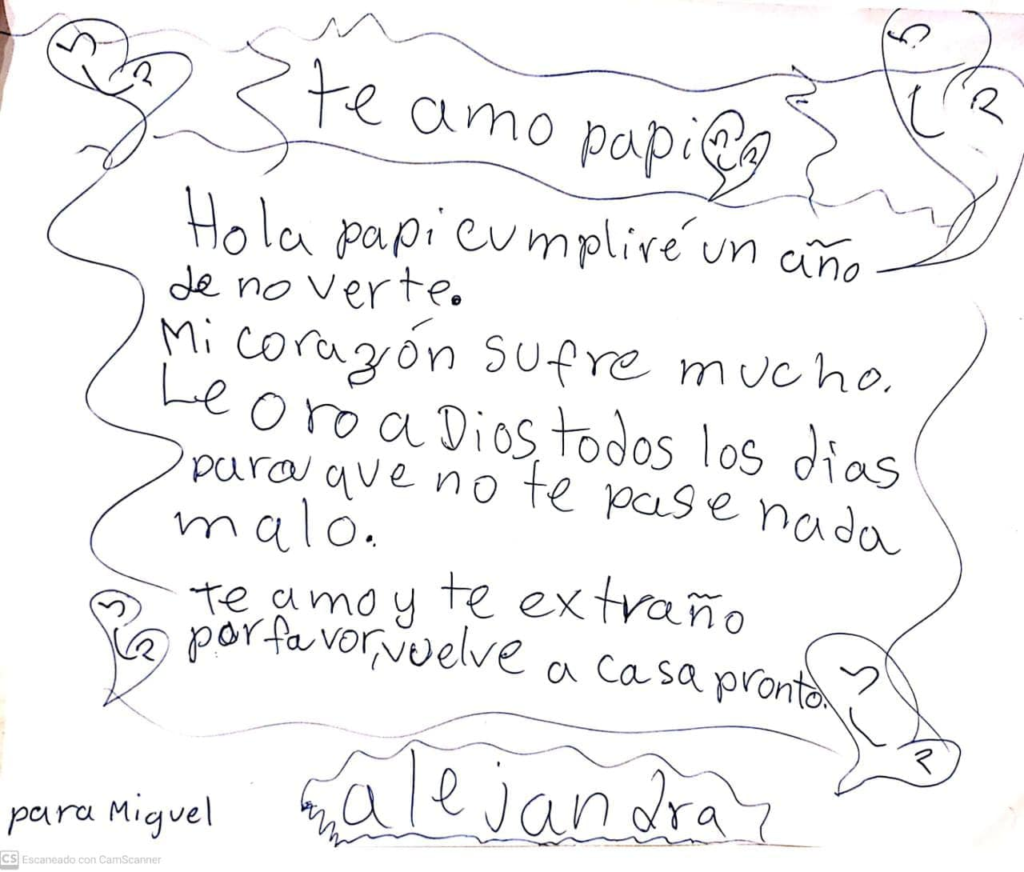 te amo papi
Hola papi cumpliré un año
de no verte.
Mi corazón sufre mucho.
Le oro a Dios todos los dias
para que no te pase nada
malo.
te amo y te extraño
por favor, vuelve a casa pronto.
alejandra
para Miguel
CS Escaneado con CamScanner